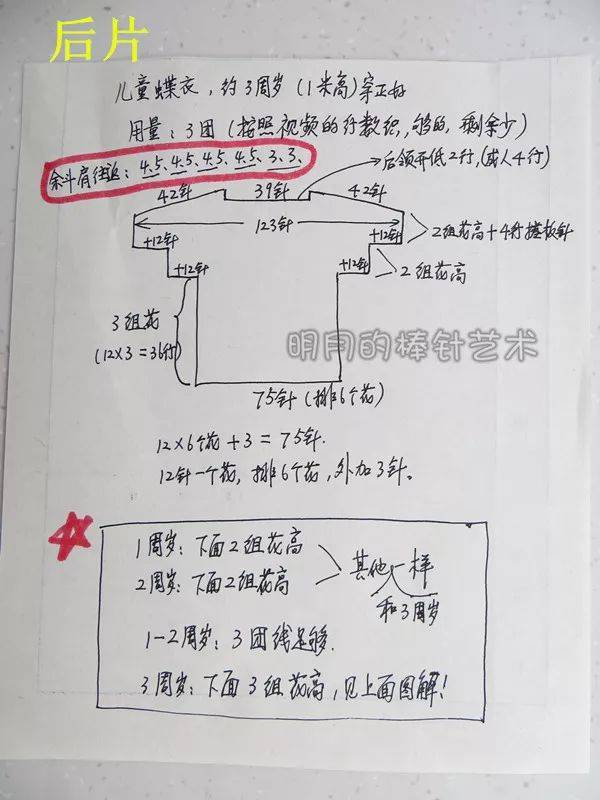 后片
儿童蝶衣，约3周岁（1米高）穿正好
用量：3团（按照视频的行数织，够的，剩余少）
余斗肩往返：4.5、4.5、4.5、4.5、3、3、
后领开低2行，(成人4行)
42针 39针 42针
123针
+12针 +12针
2组花高+4行搓板针
+12针 +12针
2组花高
3组花
(12×3=36行)
明月的棒针艺术
75针（排6个花）
12×6个花+3=75针.
12针一个花，排6个花，外加3针。
1周岁：下面2组花高
2周岁：下面2组花高
其他一样
和3周岁
1-2周岁：3团线足够.
3周岁：下面3组花高，见上面图解！